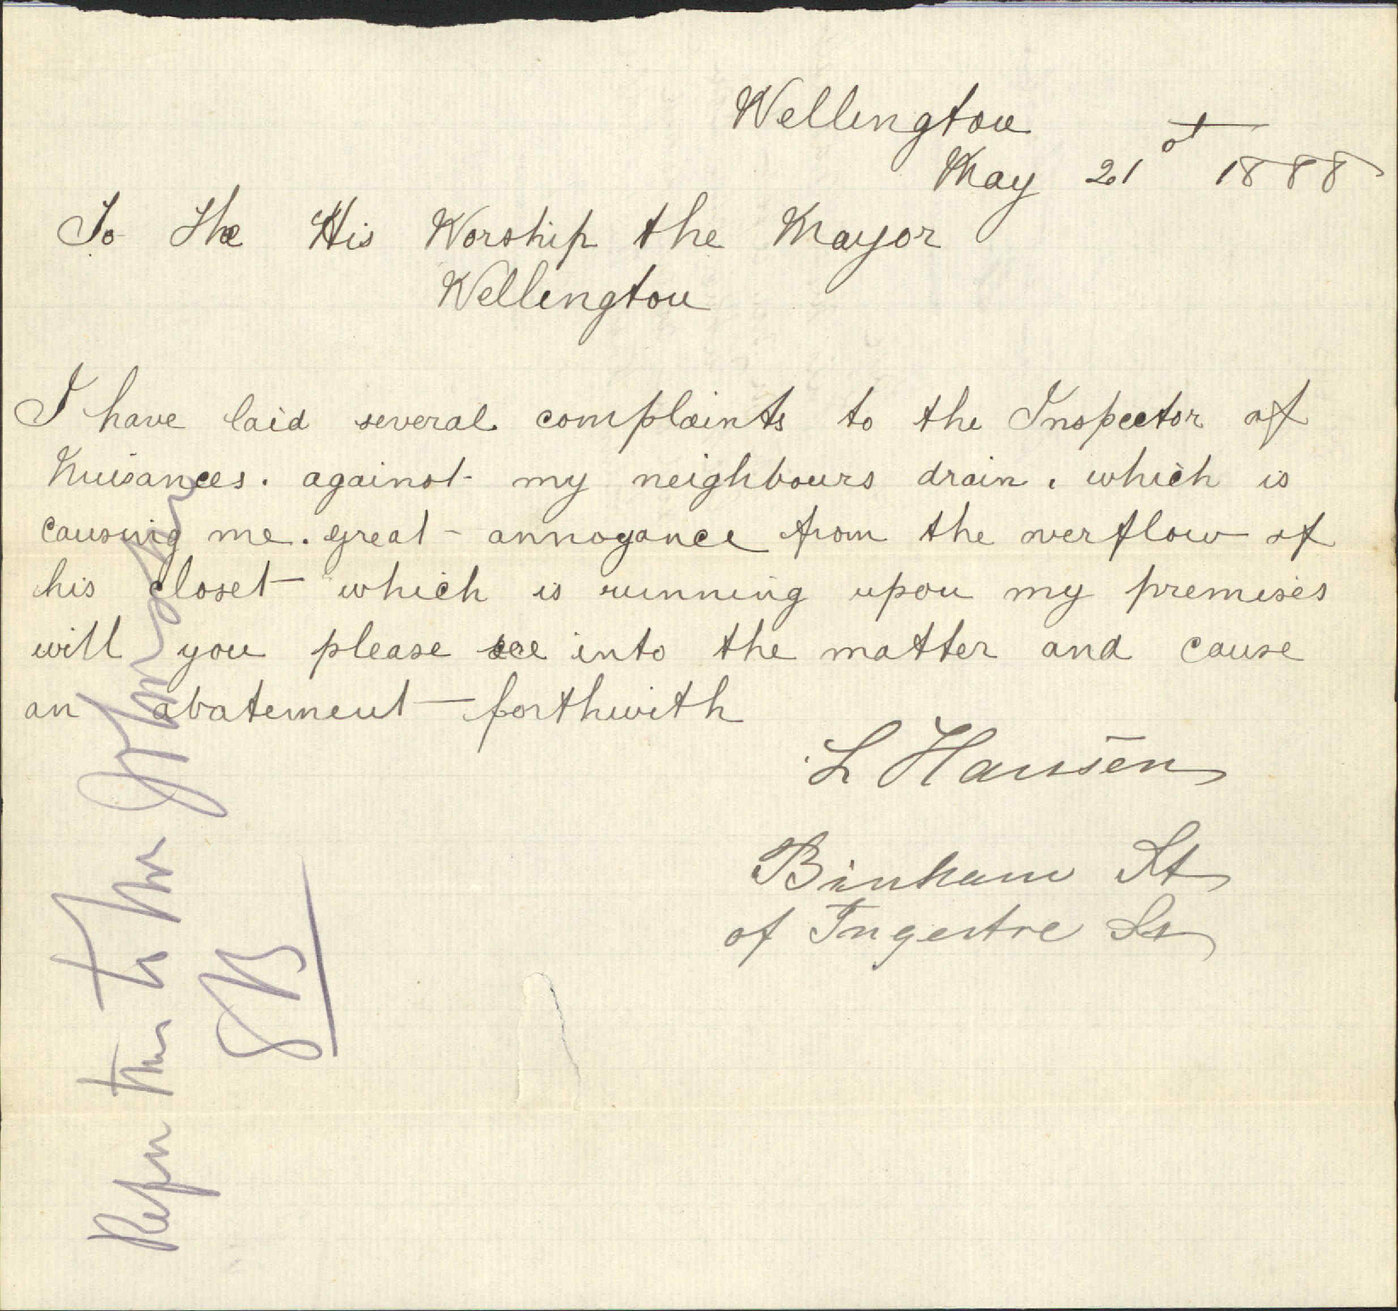 Wellington
May 21st 1888
To the His Worship the Mayor
Wellington
I have laid several complaints to the Inspector of
Nuisances. against my neighbours drain. which is
causing me. great annoyance from the overflow of
his closet which is running upon my premises
will you please see into the matter and cause
an abatement forthwith
L Hansen
Binham St
of Ingestre St
Refer this to Mr Johnston
SB